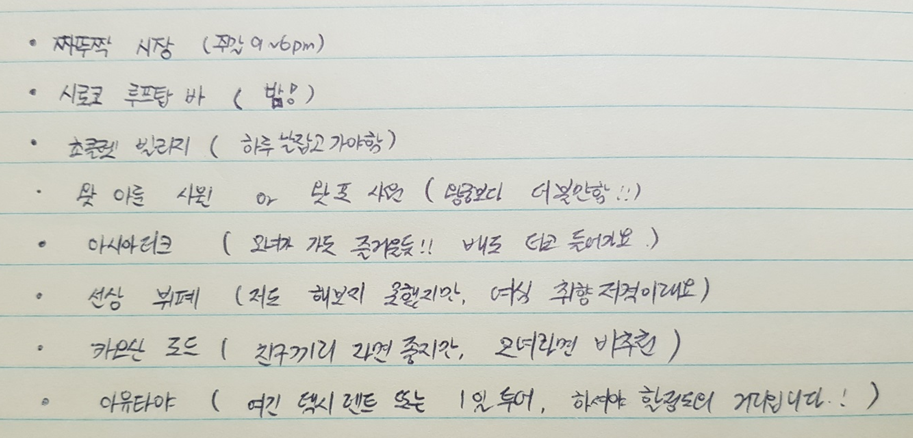 • 짜뚜짝 시장 (주말 9~6pm)
• 시로코 루프탑 바 ( 밤 )
• 초콜렛 빌리지 ( 하루 날잡고 가야함 )
· 왓 아룬 사원 or 왓 포 사원 ( 왕궁보다 더 볼만함!! )
• 아시아티크 ( 모녀가 가도 즐거울듯!! 배도 타고 들어가요. )
• 선상 뷔페 (저도 해보지 못했지만, 여심 취향저격이래요)
• 카오산 로드 ( 친구끼리 라면 좋지만, 모녀라면 비추천 )
• 아유타야 ( 여긴 택시 렌트 또는 1일 투어, 하셔야 할정도의 거리입니다.! )